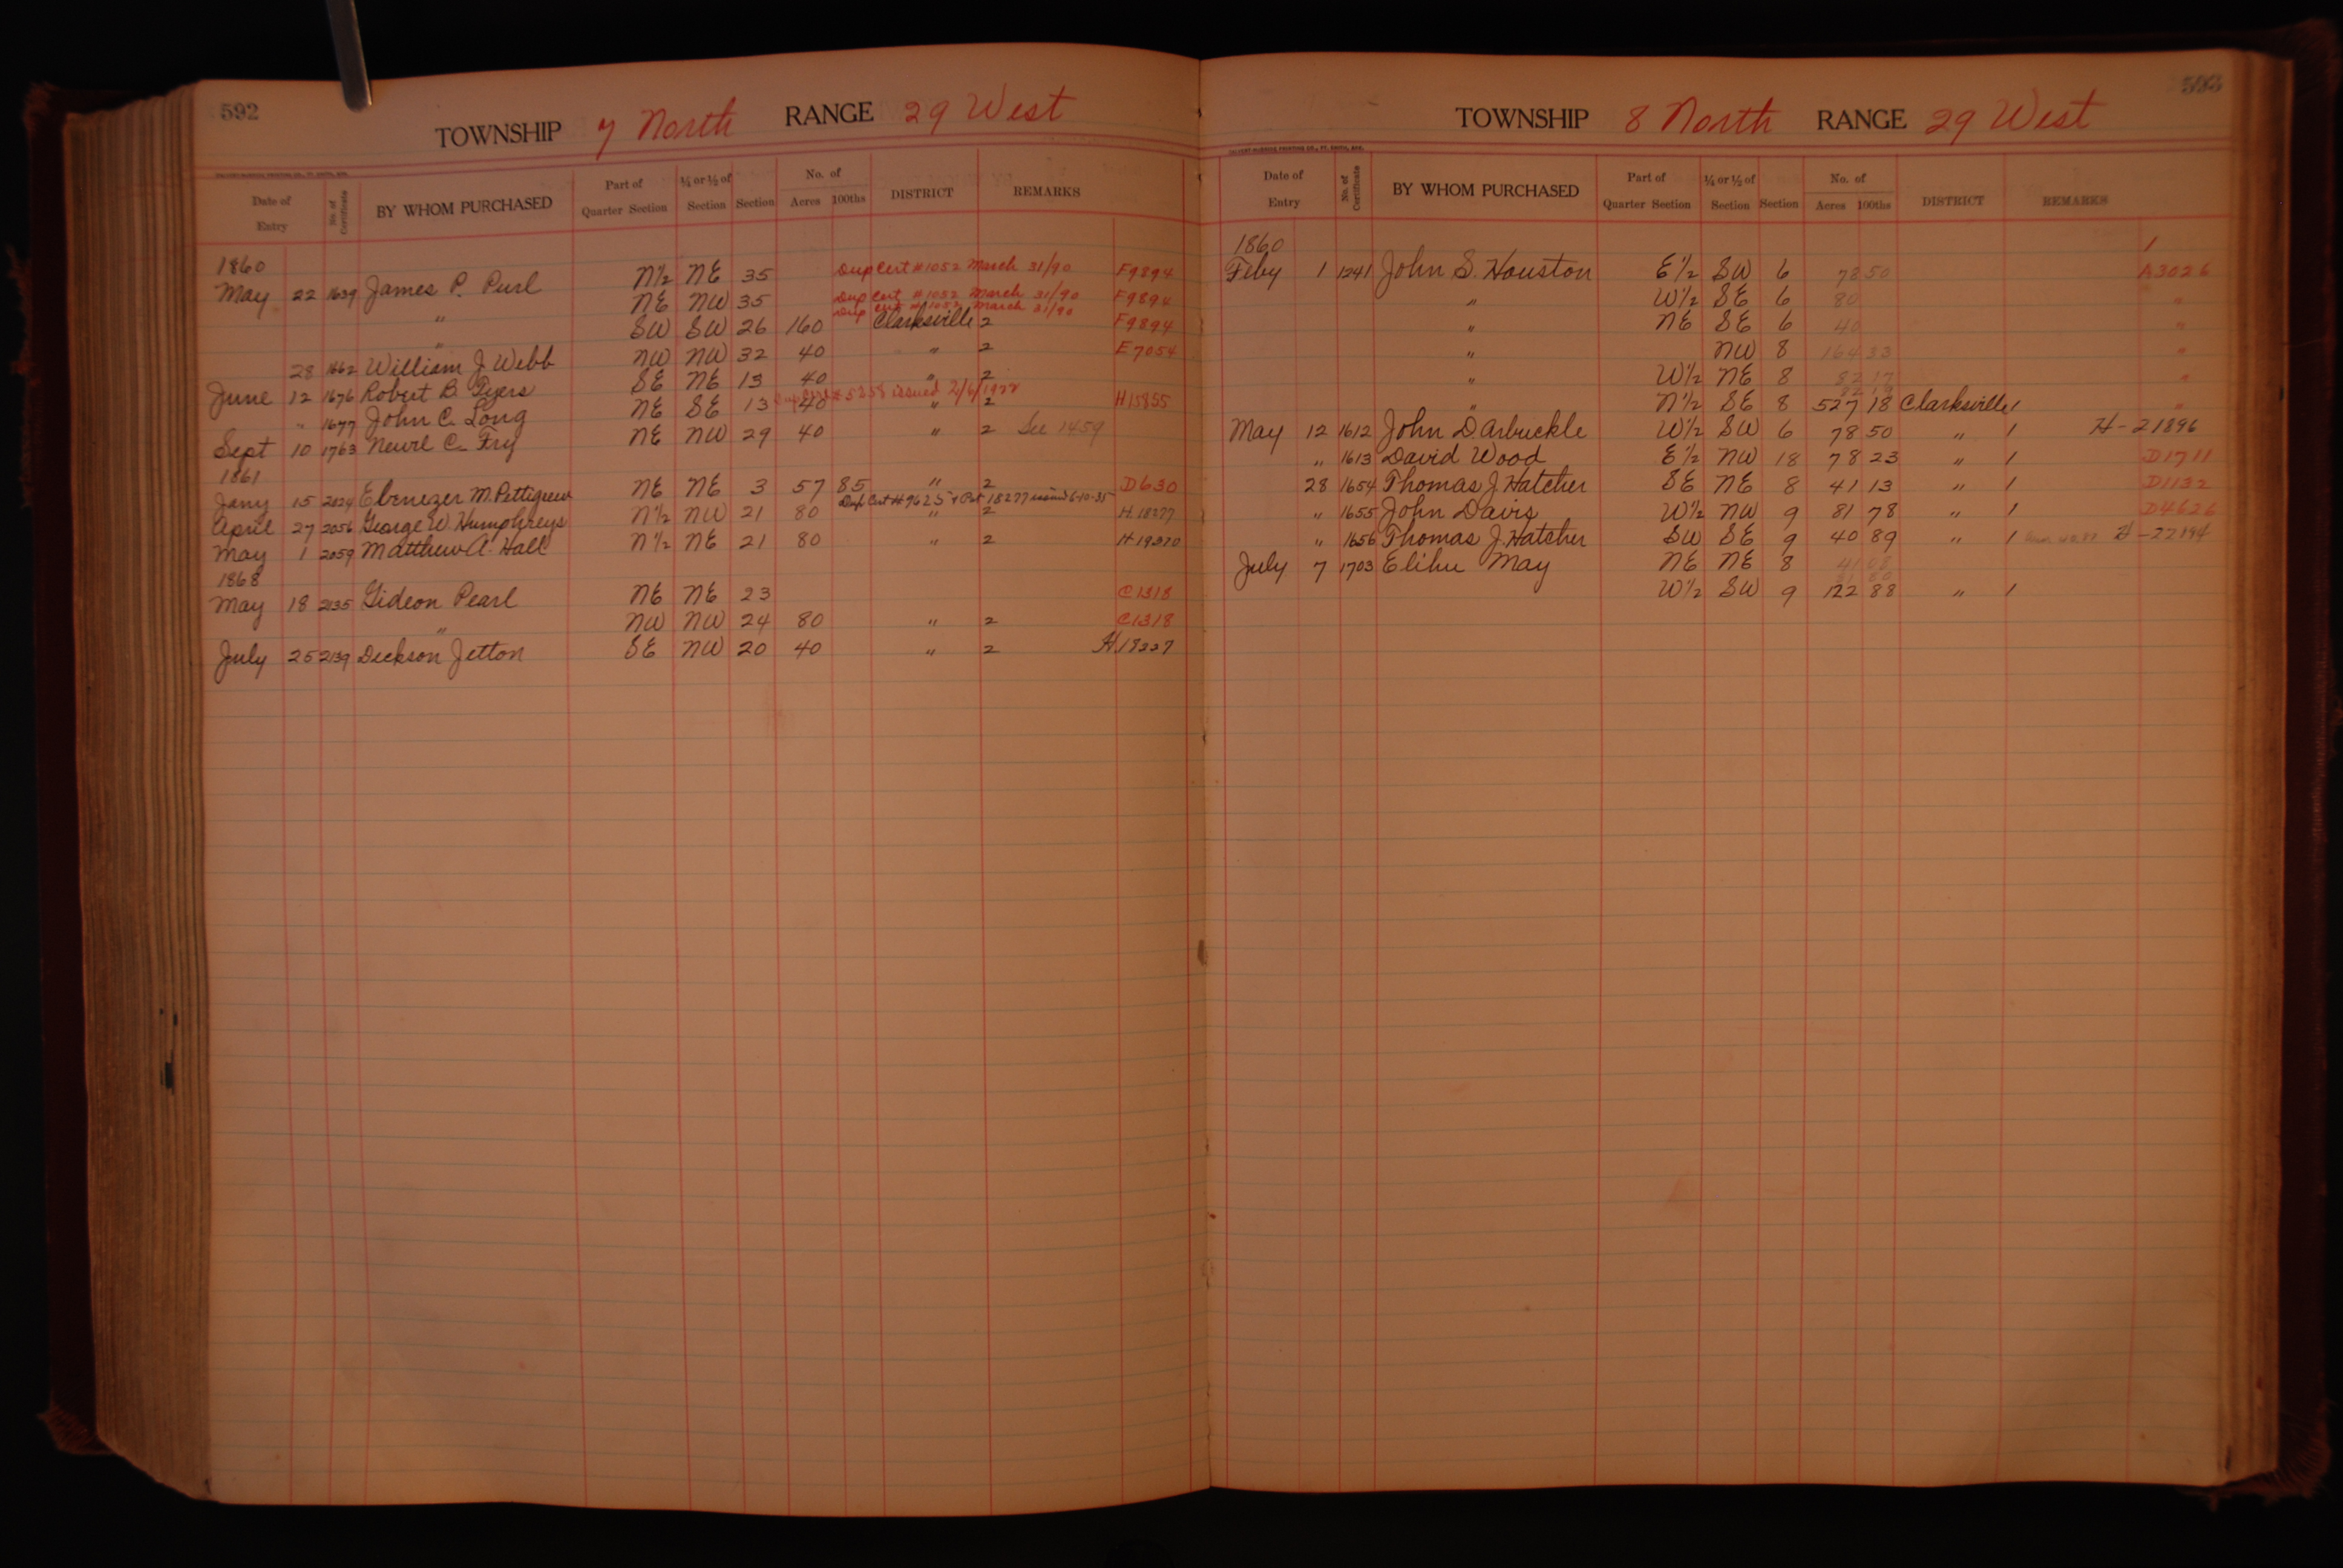 592
TOWNSHIP 7 North RANGE 29 West
Date of Entry No. of Certificate BY WHOM PURCHASED Part of Quarter Section ¼ or ½ of Section Section No. of Acres 100ths DISTRICT REMARKS
1860
May 22 1639 James P. Purl N½ NE 35 Dup Cert # 1052 March 31/90 F9894
" NE NW 35 Dup Cert # 1052 March 31/90 F9894
Dup Cert # 1052 March 31/90
" SW SW 26 160 Clarksville 2 F9894
28 1662 William J. Webb NW NW 32 40 " 2 E7054
June 12 1676 Robert B. Tyers SE NE 13 40 " 2
issued 2/6/1922
" 1677 John C. Long NE SE 13 40 " 2 H15855
Sept 10 1763 Newel C. Fry NE NW 29 40 " 2 See 1459
1861
Jany 15 2024 Ebenezer M. Pettigrew NE NE 3 57 85 " 2 D630
Dup Cert # 9625 + Pat 18277 issued 6-10-35
April 27 2056 George W. Humphreys N½ NW 21 80 " 2 H 18277
May 1 2059 Matthew A. Hall N½ NE 21 80 " 2 H 19270
1868
May 18 2135 Gideon Pearl NE NE 23 C1318
" NW NW 24 80 " 2 C1318
July 25 2139 Dickson Jetton SE NW 20 40 " 2 H 18227
TOWNSHIP 8 North RANGE 29 West
Date of Entry No. of Certificate BY WHOM PURCHASED Part of Quarter Section ¼ or ½ of Section Section No. of Acres 100ths DISTRICT REMARKS
1860 1
Feby 1 1241 John S. Houston E½ SW 6 78 50 A3026
" W½ SE 6 80 "
" NE SE 6 40 "
" NW 8 164 33 "
" W½ NE 8 82 17 "
" N½ SE 8 527 18 Clarksville 1 "
May 12 1612 John D. Arbuckle W½ SW 6 78 50 " 1 H-21896
" 1613 David Wood E½ NW 18 78 23 " 1 D1711
28 1654 Thomas J. Hatcher SE NE 8 41 13 " 1 D1132
" 1655 John Davis W½ NW 9 81 78 " 1 D4626
" 1656 Thomas J. Hatcher SW SE 9 40 89 " 1 H-22194
July 7 1703 Elihu May NE NE 8 41 08
W½ SW 9 122 88 " 1